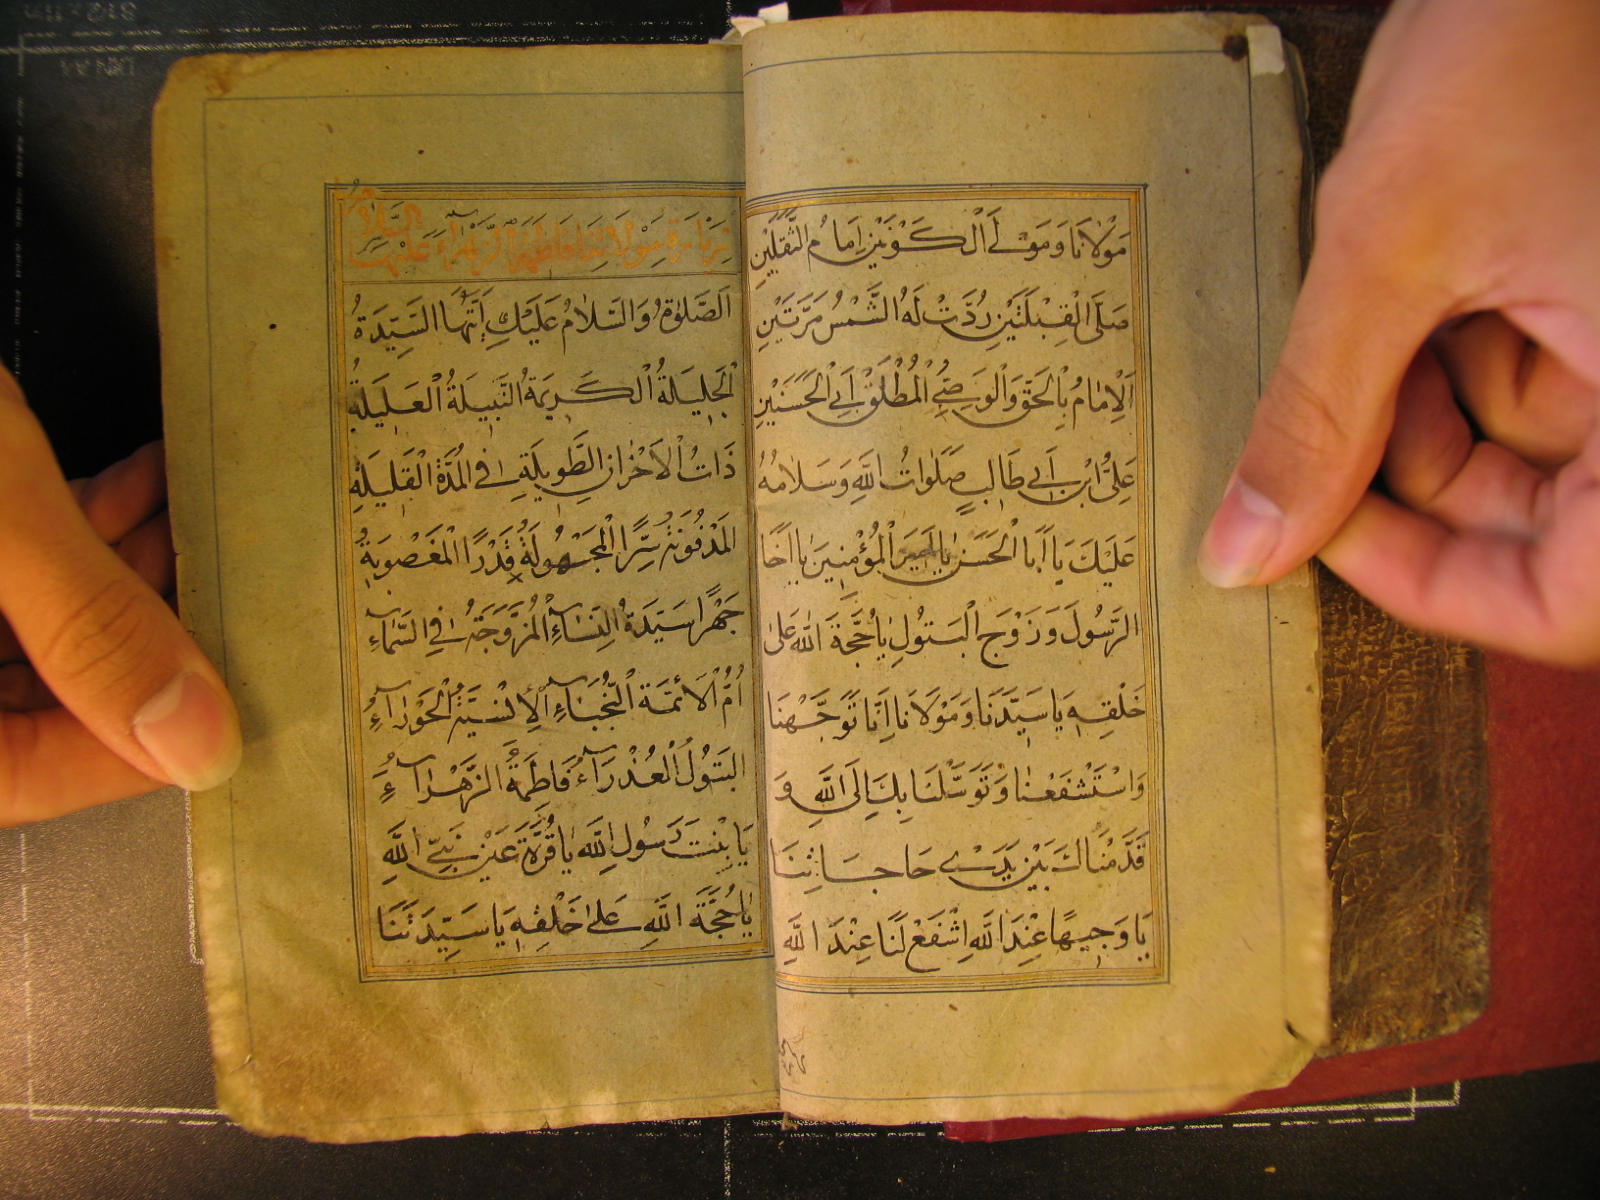 مَوْلَانَا وَمَوْلَى الْكَوْنَيْنِ اِمَامُ الثَّقَلَيْنِ
صَلَّى الْقِبْلَتَيْنِ رُدَّتْ لَهُ الشَّمْسُ مَرَّتَيْنِ
اَلْاِمَامُ بِالْحَقِّ وَالْوَصِيُّ الْمُطْلَقُ اَبِي الْحَسَنَيْنِ
عَلِيُّ ابْنِ اَبِي طَالِبٍ صَلَوَاتُ اللّٰهِ وَسَلَامُهُ
عَلَيْكَ يَا اَبَا الْحَسَنِ يَا اَمِيرَ الْمُؤْمِنِينَ يَا اَخَا
الرَّسُولِ وَزَوْجَ الْبَتُولِ يَا حُجَّةَ اللّٰهِ عَلَى
خَلْقِهِ يَا سَيِّدَنَا وَمَوْلَانَا اِنَّا تَوَجَّهْنَا
وَاسْتَشْفَعْنَا وَتَوَسَّلْنَا بِكَ اِلَى اللّٰهِ وَ
قَدَّمْنَاكَ بَيْنَ يَدَىْ حَاجَاتِنَا
يَا وَجِيهًا عِنْدَ اللّٰهِ اِشْفَعْ لَنَا عِنْدَ اللّٰهِ
زِيَارَةِ مَوْلَاتِنَا فَاطِمَةَ الزَّهْرَاءِ عَلَيْهَا السَّلَامُ
اَلصَّلٰوةُ وَالسَّلَامُ عَلَيْكِ اَيَّتُهَا السَّيِّدَةُ
الْجَلِيلَةُ الْكَرِيمَةُ النَّبِيلَةُ الْعَلِيلَةُ
ذَاتُ الْاَحْزَانِ الطَّوِيلَةِ فِي الْمُدَّةِ الْقَلِيلَةِ
الْمَدْفُونَةُ سِرًّا الْمَجْهُولَةُ قَدْرًا الْمَغْصُوبَةُ
جَهْرًا سَيِّدَةُ النِّسَاءِ الْمُزَوَّجَةُ فِي السَّمَاءِ
اُمُّ الْاَئِمَّةِ النُّجَبَاءِ الْاِنْسِيَّةُ الْحَوْرَاءُ
الْبَتُولُ الْعُذْرَاءُ فَاطِمَةُ الزَّهْرَاءُ
يَا بِنْتَ رَسُولِ اللّٰهِ يَا قُرَّةَ عَيْنِ نَبِيِّ اللّٰهِ
يَا حُجَّةَ اللّٰهِ عَلٰى خَلْقِهِ يَا سَيِّدَتَنَا